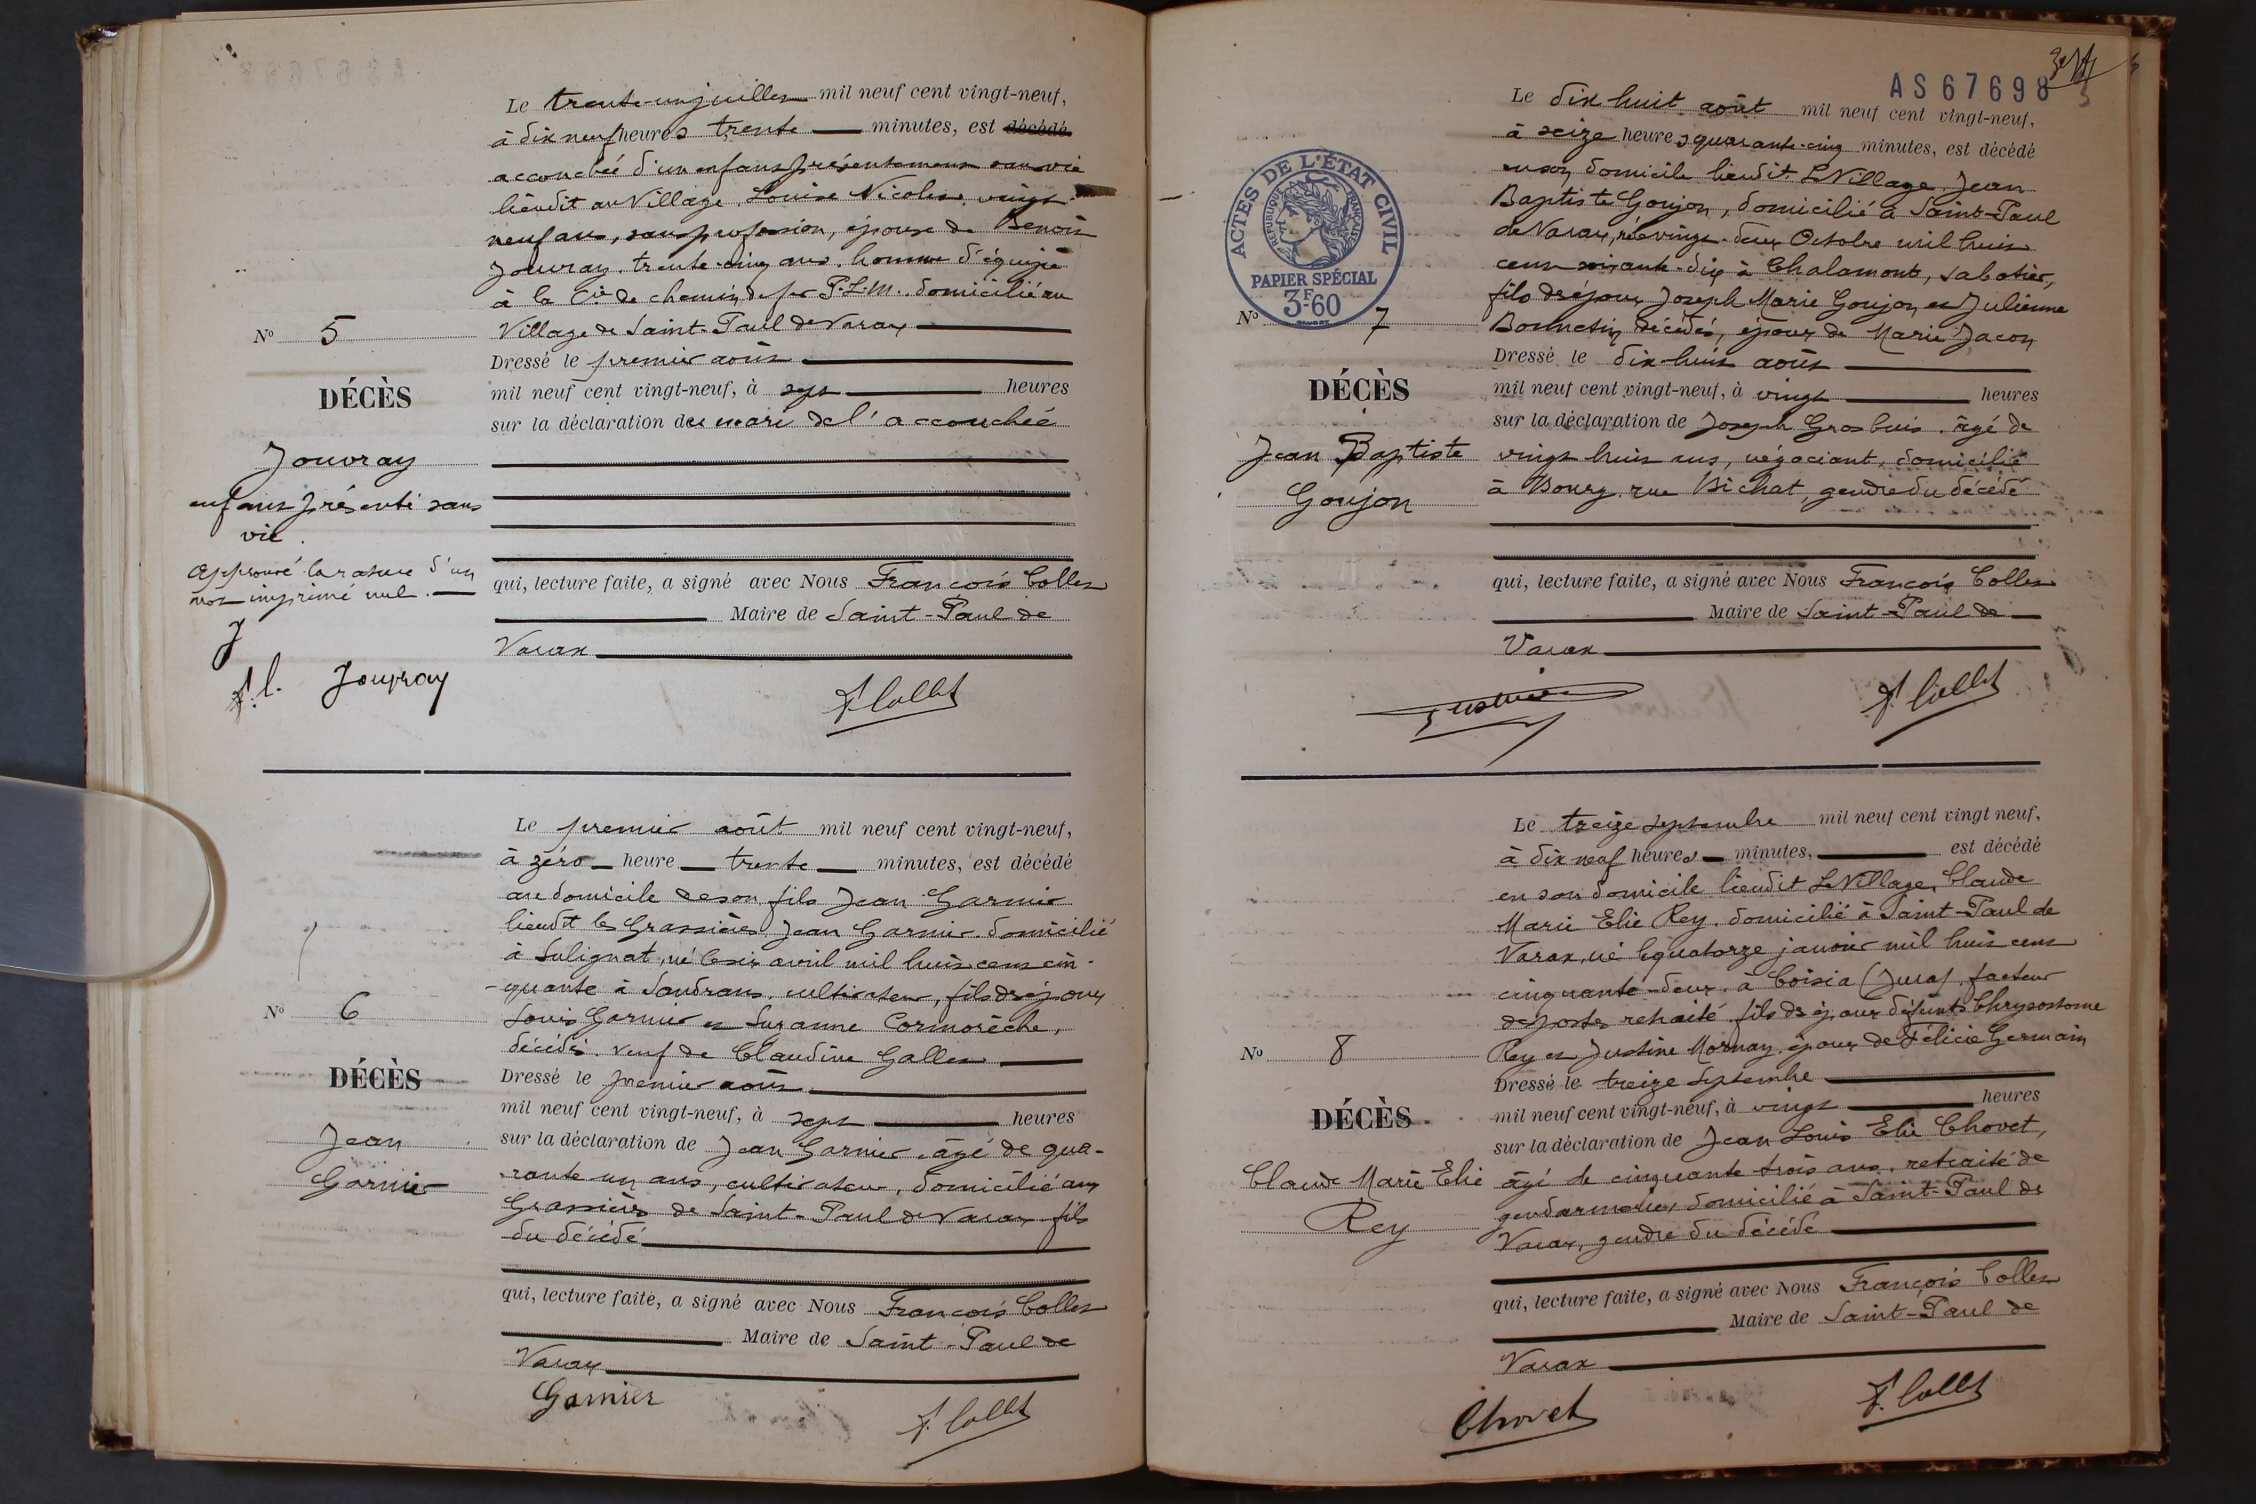 Le trente-un juillet mil neuf cent vingt-neuf,
à dix neuf heures trente minutes, est décédé
accouchée d'un enfant présentement sans vie
lieudit au Village, Louise Nicolas, vingt
neuf ans, sans profession, épouse de Benoit
Jouvray, trente-cinq ans, homme d'équipe
à la Cie de chemin de fer P.L.M. domicilié au
Village de Saint-Paul de Varax
Nº 5
Dressé le premier août
DÉCÈS
mil neuf cent vingt-neuf, à sept heures
sur la déclaration du mari de l'accouchée
Jouvray
enfant présenté sans
vie.
Approuvé la rature d'un
mot imprimé nul.
J
F. C. Jouvray
qui, lecture faite, a signé avec Nous François Collet
Maire de Saint-Paul de
Varax
F. Collet
Le premier août mil neuf cent vingt-neuf,
à zéro heure trente minutes, est décédé
au domicile de son fils Jean Garnier
lieudit les Grassières, Jean Garnier, domicilié
à Sulignat, né le six avril mil huit cent cin-
-quante à Sandrans, cultivateur, fils d'époux
Louis Garnier et Suzanne Cormorèche,
décédés. veuf de Claudine Gallet
Nº 6
Dressé le premier août
DÉCÈS
mil neuf cent vingt-neuf, à sept heures
Jean
Garnier
sur la déclaration de Jean Garnier, âgé de qua-
rante un ans, cultivateur, domicilié aux
Grassières de Saint-Paul de Varax fils
du décédé
qui, lecture faite, a signé avec Nous François Collet
Maire de Saint-Paul de
Varax
Garnier F. Collet
AS67698
Le dix huit août mil neuf cent vingt-neuf,
à seize heures quarante-cinq minutes, est décédé
en son domicile lieudit Le Village, Jean
Baptiste Goujon, domicilié à Saint-Paul
de Varax, né vingt-deux Octobre mil huit
cent soixante-dix à Chalamont, sabotier,
fils d'époux Joseph Marie Goujon et Julienne
Bonnetin décédés, époux de Marie Jacon
ACTES DE L'ÉTAT CIVIL
RÉPUBLIQUE FRANÇAISE
PAPIER SPÉCIAL
3F-60
Nº 7
Dressé le dix-huit août
DÉCÈS
mil neuf cent vingt-neuf, à vingt heures
Jean Baptiste
Goujon
sur la déclaration de Joseph Grosbuis, âgé de
vingt huit ans, négociant, domicilié
à Bourg rue Bichat, gendre du décédé
qui, lecture faite, a signé avec Nous François Collet
Maire de Saint-Paul de
Varax
F. Collet
Le treize septembre mil neuf cent vingt neuf,
à dix neuf heures minutes, est décédé
en son domicile lieudit Le Village, Claude
Marie Elie Rey, domicilié à Saint-Paul de
Varax, né le quatorze janvier mil huit cent
cinquante-deux, à Coisia (Jura), facteur
des postes retraité, fils d'époux défunts Chrysostome
Rey et Justine Mornay, époux de Félicie Germain
Nº 8
Dressé le treize Septembre
DÉCÈS
mil neuf cent vingt-neuf, à vingt heures
Claude Marie Elie
Rey
sur la déclaration de Jean Louis Elie Chovet,
âgé de cinquante-trois ans, retraité de
gendarmerie, domicilié à Saint-Paul de
Varax, gendre du décédé
qui, lecture faite, a signé avec Nous François Collet
Maire de Saint-Paul de
Varax
Chovet F. Collet